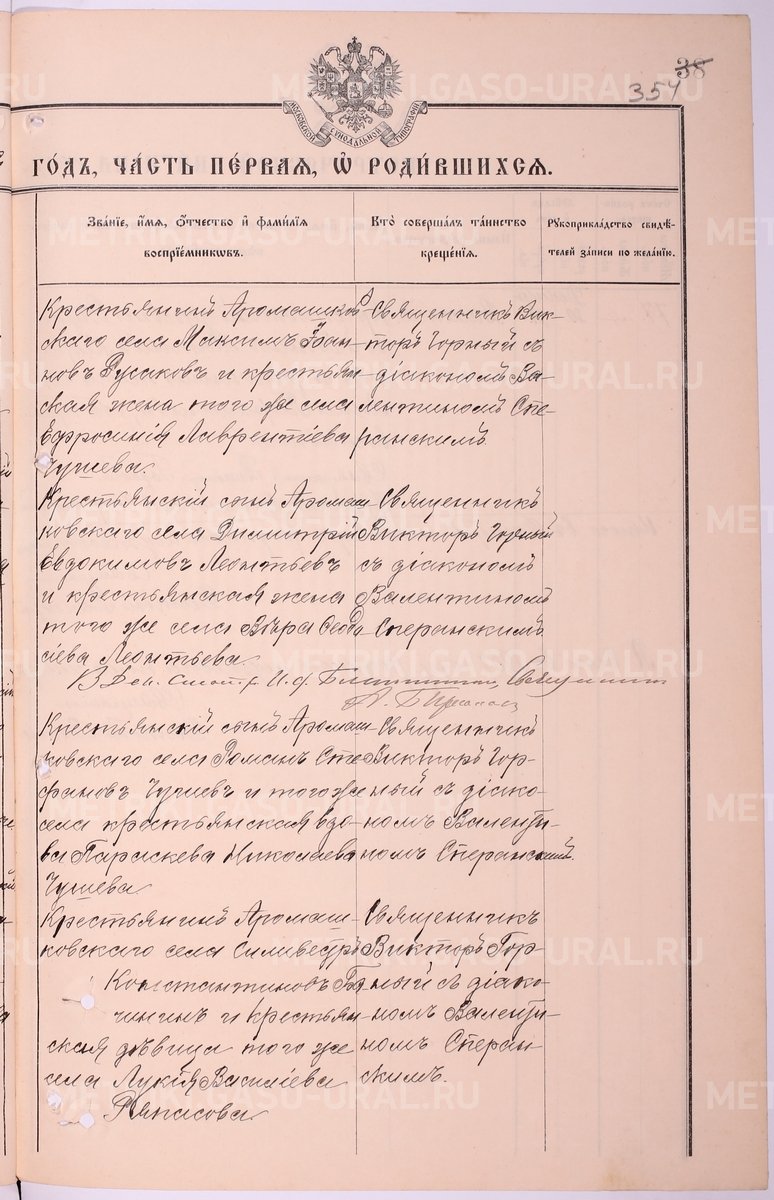 38
354
МОСКОВСКОЙ СѴНОДАЛЬНОЙ ТИПОГРАФІИ
ГОДЪ, ЧАСТЬ ПЕРВАЯ, Ѡ РОДИВШИХСЯ.
Званіе, имя, отчество и фамилія воспріемниковъ.
Кто совершалъ таинство крещенія.
Рукоприкладство свидѣтелей записи по желанію.
Крестьянинъ Аромашков
скаго села Максимъ Иван
новъ Русаковъ и крестьян
ская жена того же села
Ефросинія Лаврентіева
Чушева.
Священникъ Вик-
торъ Горный съ
діакономъ Ва-
лентиномъ Спе-
ранскимъ
Крестьянскій сынъ Аромаш
ковскаго села Димитрій
Евдокимовъ Леонтьевъ
и крестьянская жена
того же села Вѣра Ѳеодо
сіева Леонтьева.
Священникъ
Викторъ Горный
съ діакономъ
Валентиномъ
Сперанскимъ.
Крестьянскій сынъ Аромаш
ковскаго села Романъ Сте
фановъ Чушевъ и того же
села крестьянская вдо-
ва Параскева Николаева
Чушева
Священникъ
Викторъ Гор-
ный съ діако-
номъ Валенти-
номъ Сперанский.
Крестьянинъ Аромаш-
ковскаго села Силивестръ
Константиновъ
и крестьян
ская дѣвица того же
села Лукія Василіева
Священникъ
Викторъ Гор-
ный съ діако-
номъ Валенти-
номъ Сперан-
скимъ.
METRIKI.GASO-URAL.RU